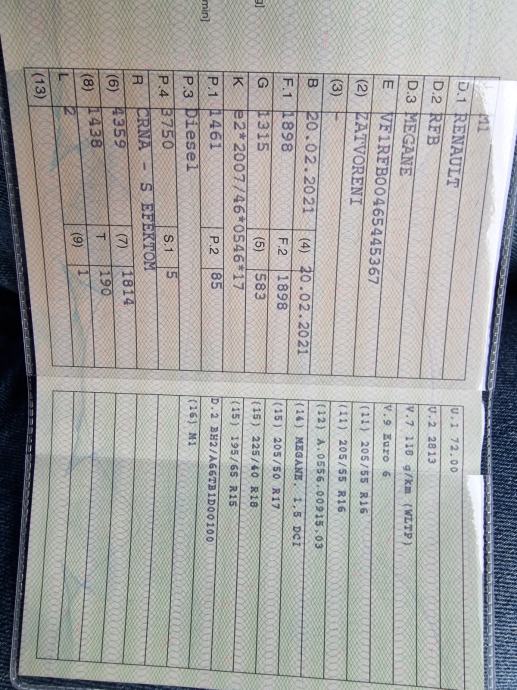 M1
D.1 RENAULT
D.2 RFB
D.3 MEGANE
E VF1RFB00465445367
(2) ZATVORENI
(3) -
B 20.02.2021 (4) 20.02.2021
F.1 1898 F.2 1898
G 1315 (5) 583
K e2*2007/46*0546*17
P.1 1461 P.2 85
P.3 Diesel
P.4 3750 S.1 5
R CRNA - S EFEKTOM
(6) 4359 (7) 1814
(8) 1438 T 190
L 2 (9) 1
(13)
g]
min]
U.1 72.00
U.2 2813
V.7 118 g/km (WLTP)
V.9 Euro 6
(11) 205/55 R16
(11) 205/55 R16
(12) A.0556.00915.03
(14) MEGANE. 1,5 DCI
(15) 205/50 R17
(15) 225/40 R18
(15) 195/65 R15
D.2 BH2/A66TB1D00100
(16) M1